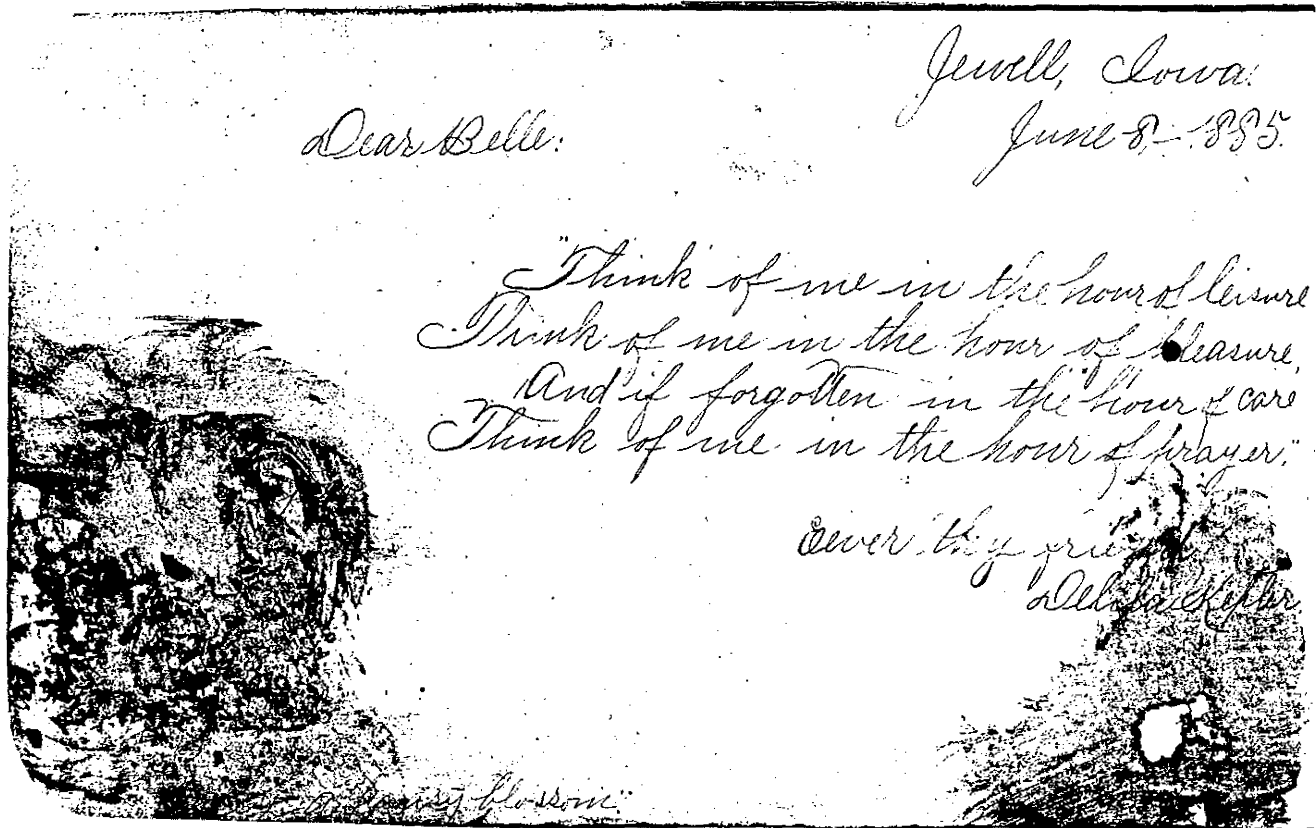 Jewell, Iowa.
June 8, 1885.
Dear Belle:
"Think of me in the hour of leisure
Think of me in the hour of pleasure,
And if forgotten in the hour of care
Think of me in the hour of prayer."
Ever thy friend
blossom"